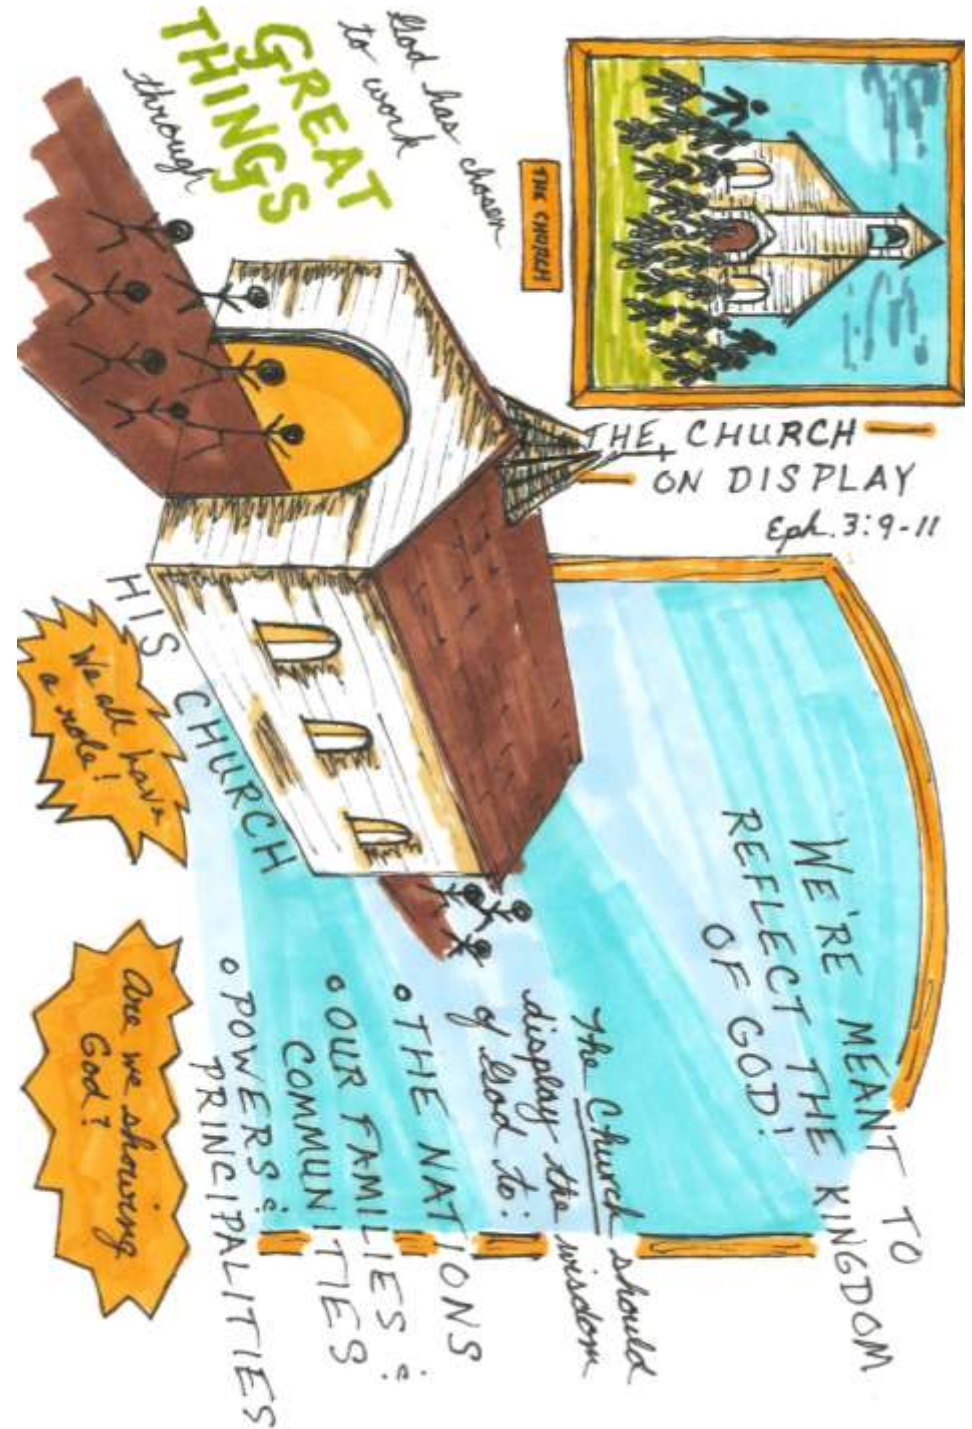 THE CHURCH
ON DISPLAY
Eph. 3:9-11
THE CHURCH
God has chosen
to work
GREAT
THINGS
through
HIS CHURCH
We all have
a role!
WE'RE MEANT TO
REFLECT THE KINGDOM
OF GOD!
The Church should
display the wisdom
of God to:
o THE NATIONS
o OUR FAMILIES &
COMMUNITIES
o POWERS &
PRINCIPALITIES
Are we showing
God?